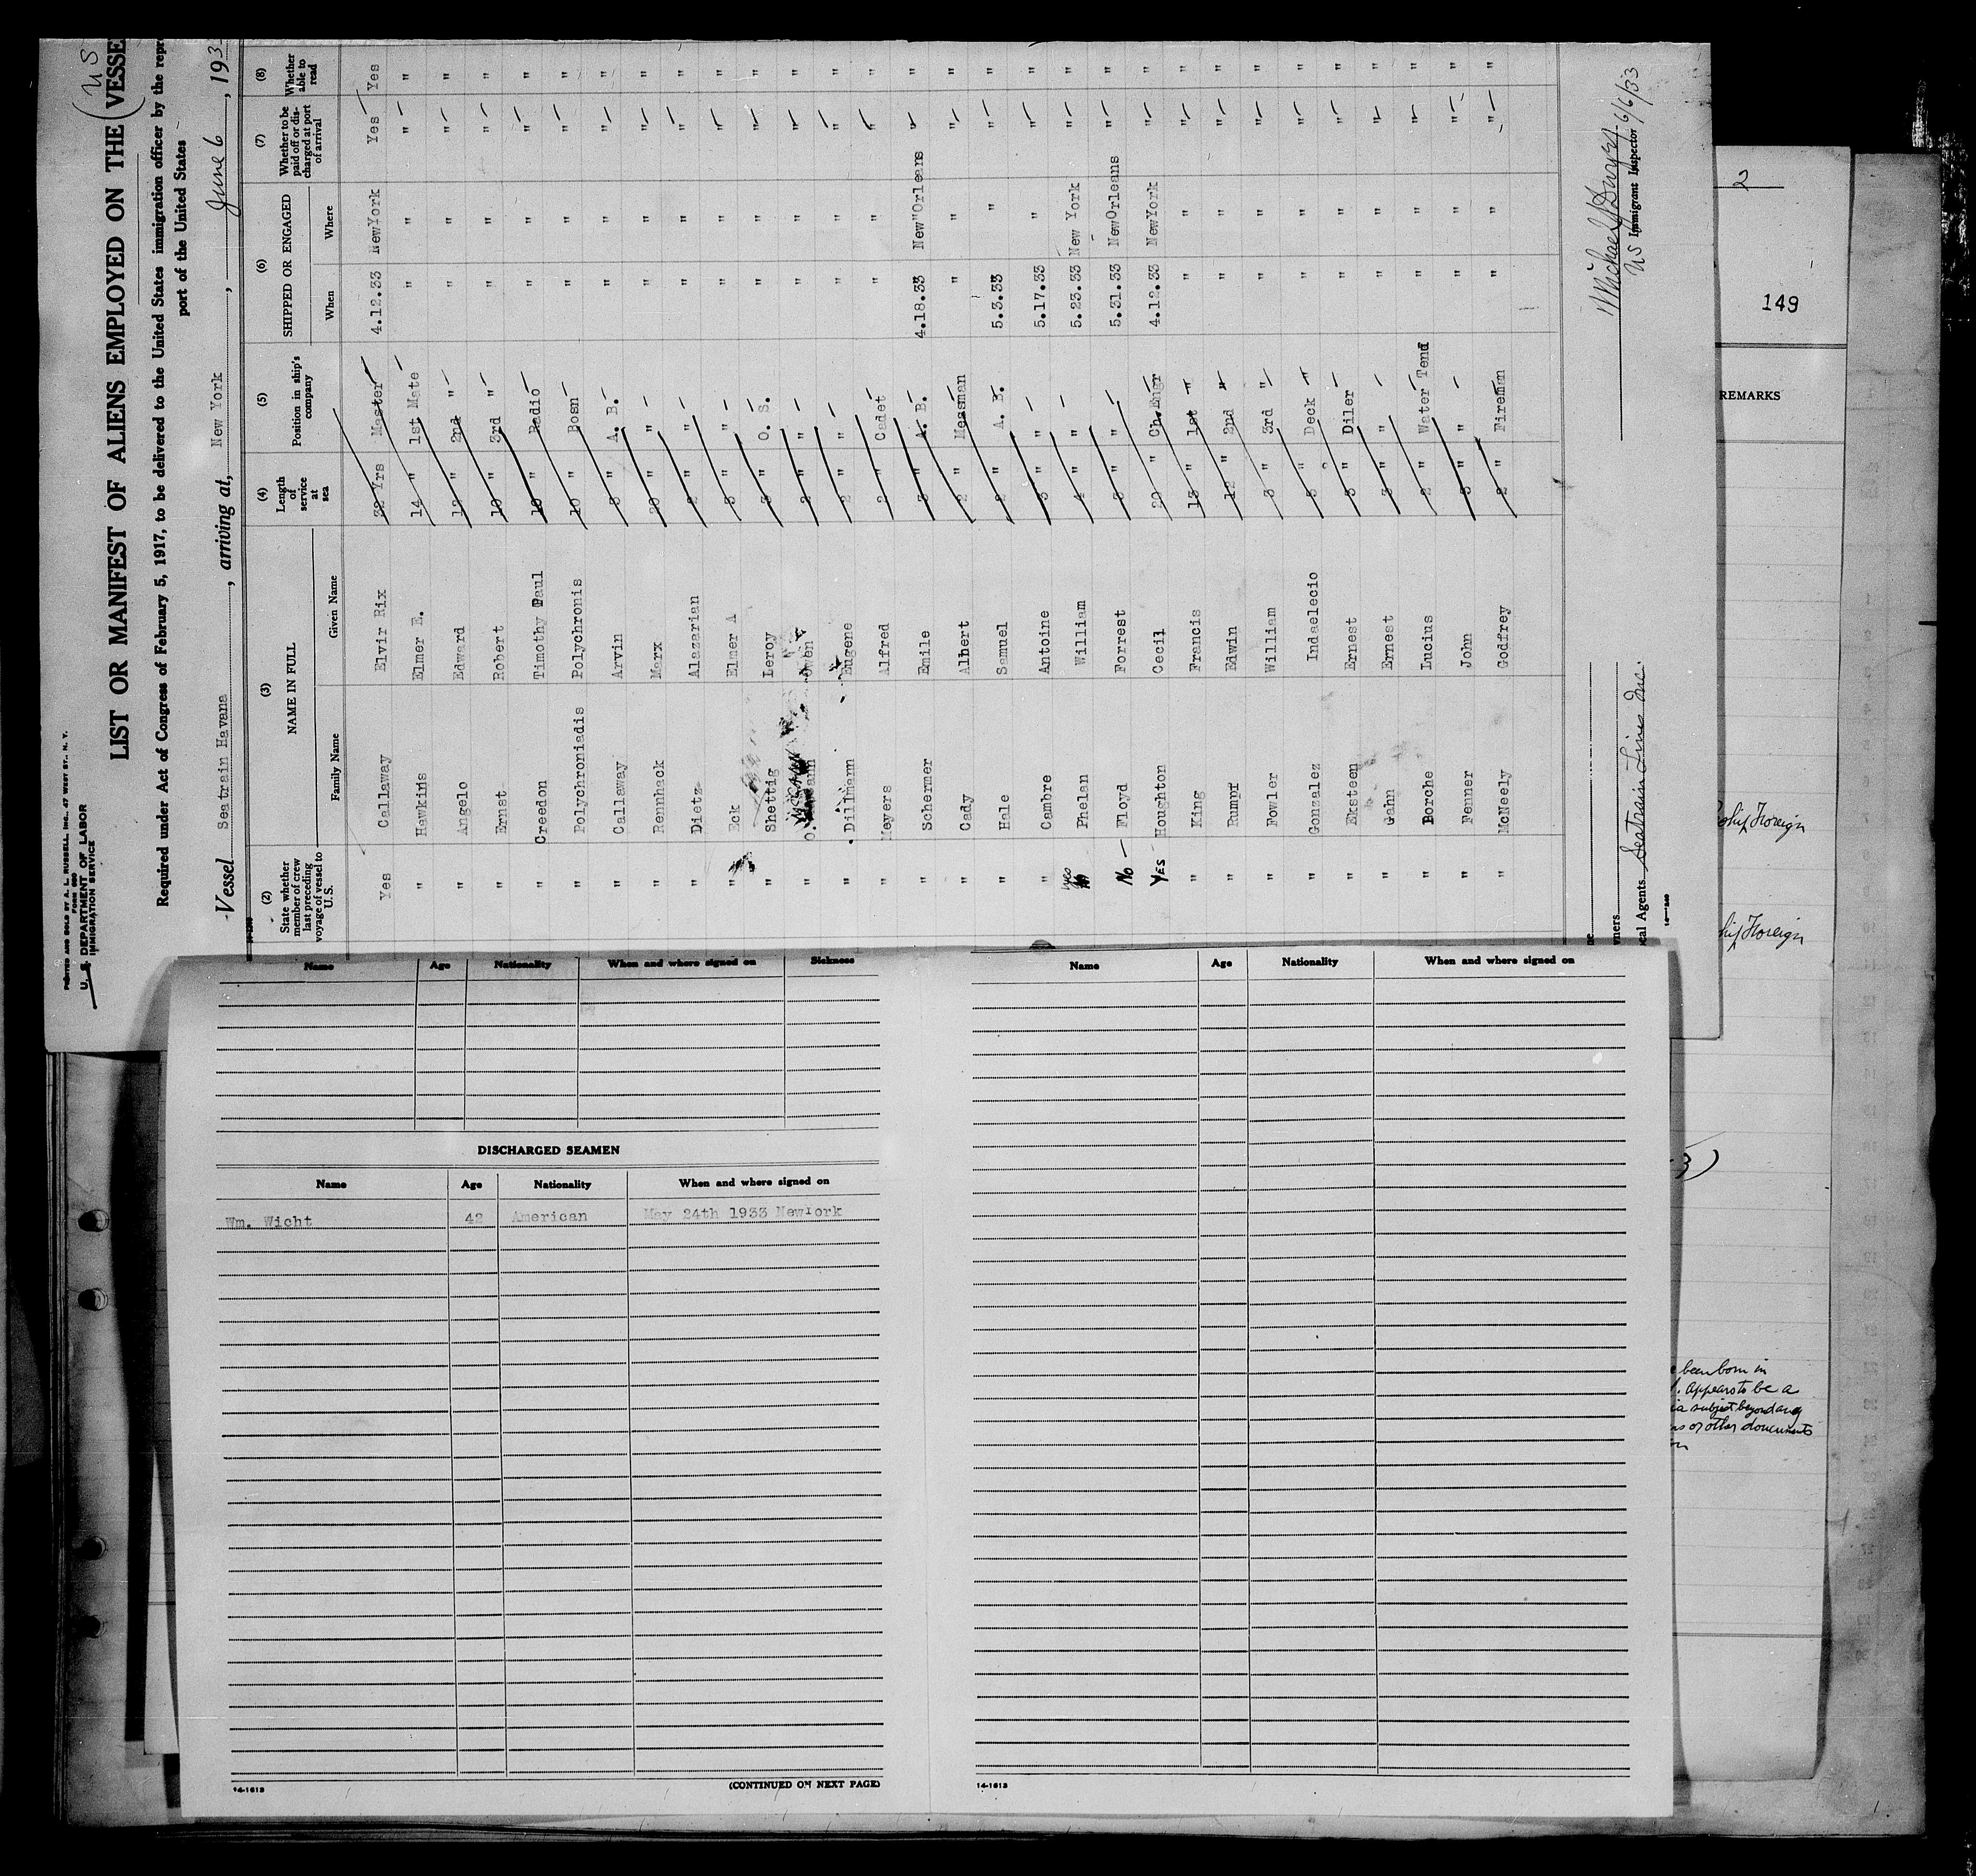 PRINTED AND SOLD BY A. L. RUSSELL, INC., 47 WEST ST., N. Y.
FORM 680
U. S. DEPARTMENT OF LABOR
IMMIGRATION SERVICE
(US
LIST OR MANIFEST OF ALIENS EMPLOYED ON THE VESSE
Required under Act of Congress of February 5, 1917, to be delivered to the United States immigration officer by the repr
port of the United States
Vessel Seatrain Havana, arriving at, New York, June 6, 193
(2) (3) (4) (5) (6) (7) (8)
State whether member of crew last preceding voyage of vessel to U.S. NAME IN FULL Length of service at sea Position in ship's company SHIPPED OR ENGAGED Whether to be paid off or discharged at port of arrival Whether able to read
Family Name Given Name When Where
Yes Callaway Elvir Rix 32 Yrs Master 4.12.33 NewYork Yes Yes
" Hawkins Elmer E. 14 " 1st Mate " " " "
" Angelo Edward 12 " 2nd " " " " "
" Ernst Robert 10 " 3rd " " " " "
" Creedon Timothy Paul 10 " Radio " " " "
" Polychroniadis Polychronis 10 " Bosn " " " "
" Callaway Arvin 8 " A. B. " " " "
" Rennhack Marx 20 " " " " " "
" Dietz Alazarian 2 " " " " " "
" Eck Elmer A 3 " " " " " "
" Shettig Leroy 3 " O. S. " " " "
" Owen F 2 " " " " " "
" Dillmann Eugene 2 " " " " " "
" Meyers Alfred 2 " Cadet " " " "
" Schermer Emile 3 " A. B. 4.18.33 New"Orleans " "
" Cady Albert 2 " Messman " " " "
" Hale Samuel 2 " A. B. 5.3.33 " " "
" Cambre Antoine 3 " " 5.17.33 " " "
yes Phelan William 4 " " 5.23.33 New York " "
No Floyd Forrest 3 " " 5.31.33 NewOrleans " "
Yes Houghton Cecil 20 " Ch.Engr 4.12.33 NewYork " "
" King Francis 13 " 1st " " " " "
" Rumpf Edwin 12 " 2nd " " " " "
" Fowler William 3 " 3rd " " " " "
" Gonzalez Indaelecio 3 " Deck " " " " "
" Eksteen Ernest 3 " Oiler " " " "
" Gahn Ernest 3 " " " " " "
" Borche Lucius 2 " Water Tend " " " "
" Fenner John 3 " " " " " "
" McNeely Godfrey 2 " Fireman " " " "
6/6/33
US Immigrant Inspector
wners
ocal Agents Seatrain Lines Inc.
2
149
REMARKS
Foreign
Foreign
been born in
appears to be a
subject beyond any
or other documents
Name Age Nationality When and where signed on Sickness
DISCHARGED SEAMEN
Name Age Nationality When and where signed on
Wm. Wicht 42 American May 24th 1933 NewYork
14-1613
(CONTINUED ON NEXT PAGE)
Name Age Nationality When and where signed on
14-1613